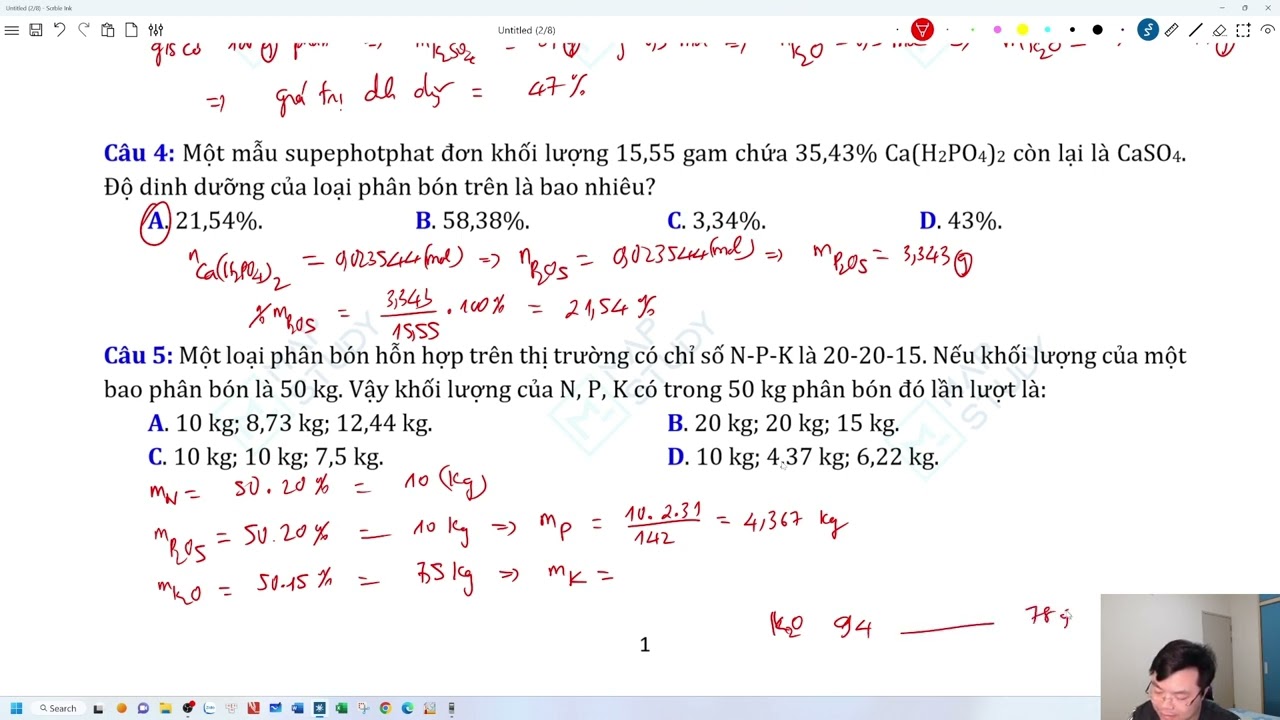 Untitled (2/8) - Scrble Ink
Untitled (2/8)
⇒ giá trị dh dg = 47%
Câu 4: Một mẫu supephotphat đơn khối lượng 15,55 gam chứa 35,43% Ca(H2PO4)2 còn lại là CaSO4.
Độ dinh dưỡng của loại phân bón trên là bao nhiêu?
A. 21,54%. B. 58,38%. C. 3,34%. D. 43%.
n Ca(H2PO4)2 = 0,023544 (mol) ⇒ n P2O5 = 0,023544 (mol) ⇒ m P2O5 = 3,343 g
% m P2O5 = 3,343 / 15,55 . 100% = 21,54 %
Câu 5: Một loại phân bón hỗn hợp trên thị trường có chỉ số N-P-K là 20-20-15. Nếu khối lượng của một
bao phân bón là 50 kg. Vậy khối lượng của N, P, K có trong 50 kg phân bón đó lần lượt là:
A. 10 kg; 8,73 kg; 12,44 kg. B. 20 kg; 20 kg; 15 kg.
C. 10 kg; 10 kg; 7,5 kg. D. 10 kg; 4.37 kg; 6,22 kg.
m N = 50.20% = 10 (kg)
m P2O5 = 50.20% = 10 kg ⇒ m P = 10.2.31 / 142 = 4,367 kg
m K2O = 50.15% = 7,5 kg ⇒ m K =
K2O 94 — 78 g
1
MAP STUDY
MAP STUDY
MAP STUDY
Search